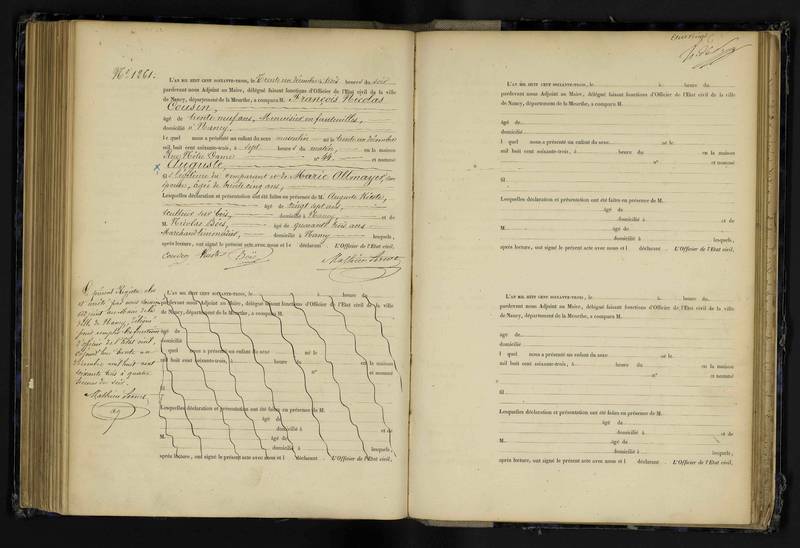 N° 1261.
L'AN MIL HUIT CENT SOIXANTE-TROIS, le Trente un décembre trois heures du soir
pardevant nous Adjoint au Maire, délégué faisant fonctions d'Officier de l'Etat civil de la ville
de Nancy, département de la Meurthe, a comparu M. François Nicolas
Cousin,
âgé de trente neuf ans, Menuisier en fauteuilles,
domicilié à Nancy,
lequel nous a présenté un enfant du sexe masculin né le trente un décembre
mil huit cent soixante-trois, à sept heures du matin, en la maison
Rue Notre Dame n° 44. et nommé
Auguste
fils légitime du comparant et de Marie Altmayer,
épouse, âgée de trente cinq ans,
Lesquelles déclaration et présentation ont été faites en présence de M. Auguste
âgé de vingt sept ans,
Sculteur sur bois, domicilié à Nancy et de
M. Nicolas Bois, âgé de quarante trois ans
Marchand limonadier, domicilié à Nancy lesquels,
après lecture, ont signé le présent acte avec nous et le déclarant. L'Officier de l'Etat civil,
Cousin Bois Mathieu
Le présent Registre clos
et arrêté par nous
adjoint au Maire de la
ville de Nancy, délégué
pour remplir les fonctions
d'officier de l'Etat civil,
aujourd'hui trente un
décembre mil huit cent
soixante trois à quatre
heures du soir.
Mathieu
L'AN MIL HUIT CENT SOIXANTE-TROIS, le à heure du
pardevant nous Adjoint au Maire, délégué faisant fonctions d'Officier de l'Etat civil de la ville
de Nancy, département de la Meurthe, a comparu M.
âgé de
domicilié
l quel nous a présenté un enfant du sexe né le
mil huit cent soixante-trois, à heure du en la maison
n° et nommé
fil
Lesquelles déclaration et présentation ont été faites en présence de M.
âgé de
domicilié à et de
M. âgé de
domicilié à lesquels,
après lecture, ont signé le présent acte avec nous et l déclarant . L'Officier de l'Etat civil,
L'AN MIL HUIT CENT SOIXANTE-TROIS, le à heure du
pardevant nous Adjoint au Maire, délégué faisant fonctions d'Officier de l'Etat civil de la ville
de Nancy, département de la Meurthe, a comparu M.
âgé de
domicilié
l quel nous a présenté un enfant du sexe né le
mil huit cent soixante-trois, à heure du en la maison
n° et nommé
fil
Lesquelles déclaration et présentation ont été faites en présence de M.
âgé de
domicilié à et de
M. âgé de
domicilié à lesquels,
après lecture, ont signé le présent acte avec nous et l déclarant . L'Officier de l'Etat civil,
L'AN MIL HUIT CENT SOIXANTE-TROIS, le à heure du
pardevant nous Adjoint au Maire, délégué faisant fonctions d'Officier de l'Etat civil de la ville
de Nancy, département de la Meurthe, a comparu M.
âgé de
domicilié
l quel nous a présenté un enfant du sexe né le
mil huit cent soixante-trois, à heure du en la maison
n° et nommé
fil
Lesquelles déclaration et présentation ont été faites en présence de M.
âgé de
domicilié à et de
M. âgé de
domicilié à lesquels,
après lecture, ont signé le présent acte avec nous et l déclarant . L'Officier de l'Etat civil,